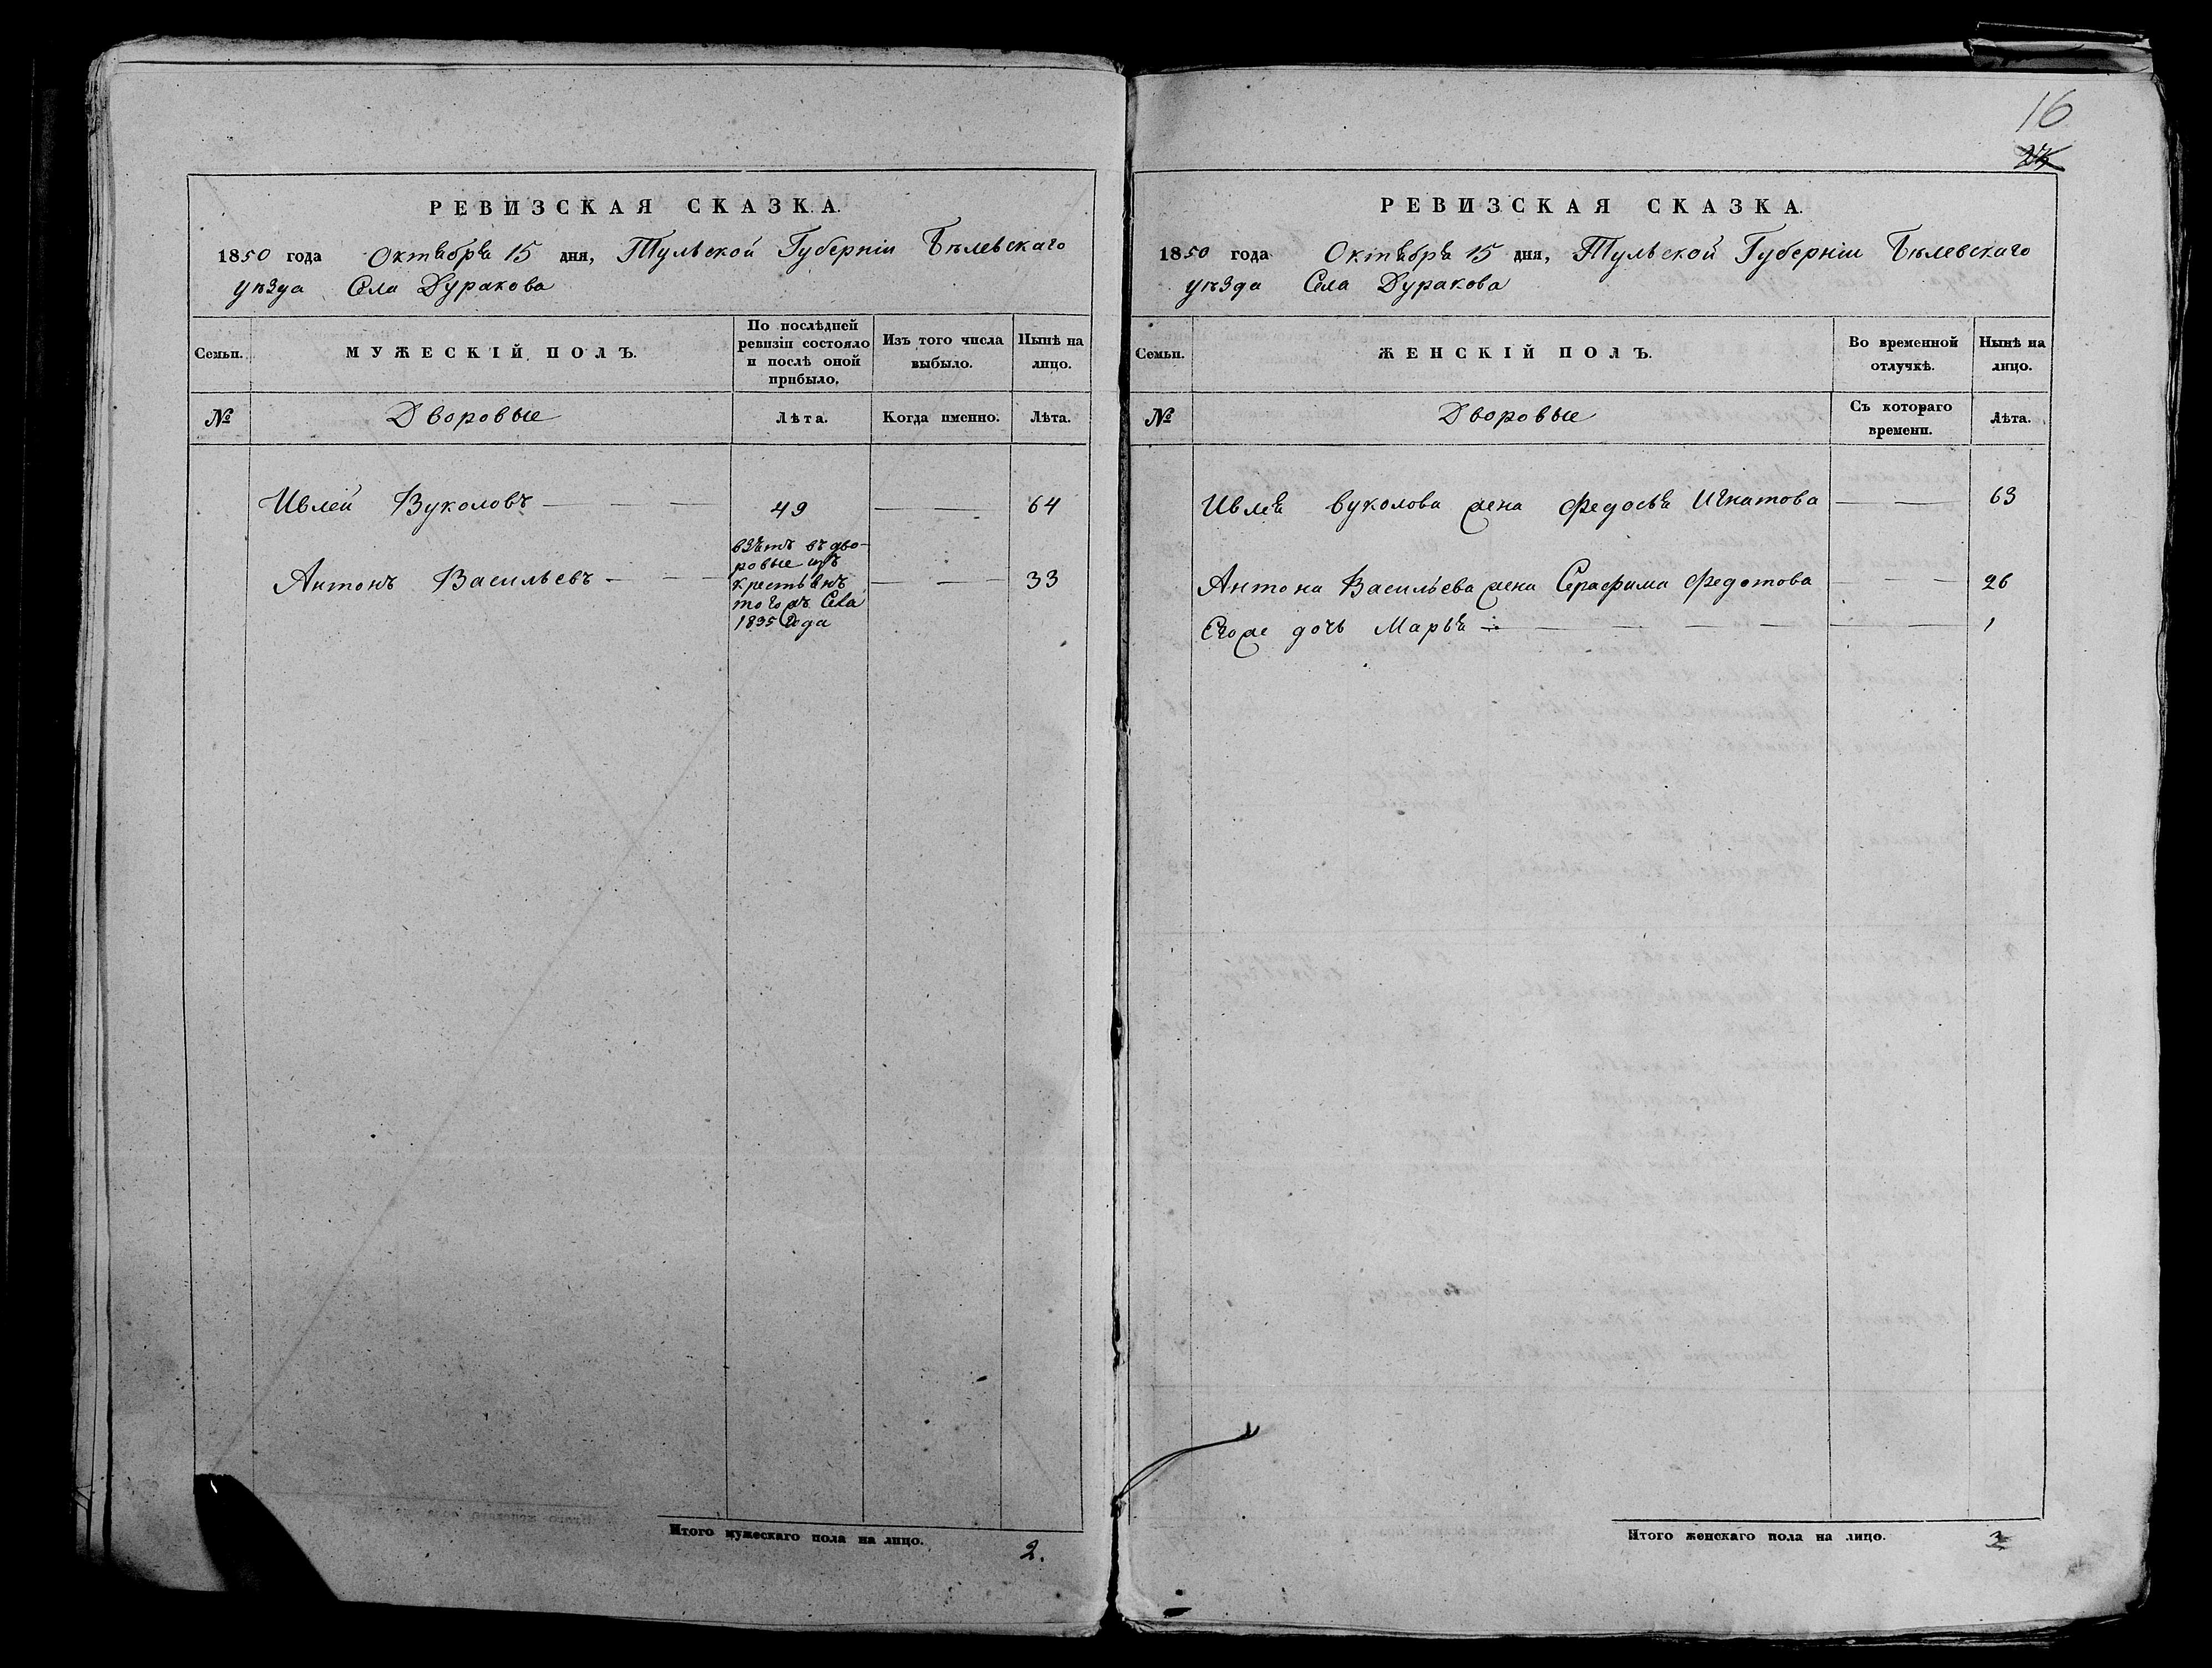 16
РЕВИЗСКАЯ СКАЗКА.
1850 года Октября 15 дня, Тульской Губерніи Бѣлевскаго
уѣзда Села Дуракова
Семьи.
МУЖЕСКІЙ ПОЛЪ.
По послѣдней ревизіи состояло и послѣ оной прибыло.
Изъ того числа выбыло.
Нынѣ на лицо.
№ Дворовые Лѣта. Когда именно. Лѣта.
Ивлей Вуколовъ — — — 49 — — 64
Антонъ Васильевъ — — —
взятъ въ дво-
ровые изъ
крестьянъ
тогожъ Села
1835 Года
— — 33
Итого мужескаго пола на лицо. 2.
РЕВИЗСКАЯ СКАЗКА.
1850 года Октября 15 дня, Тульской Губерніи Бѣлевскаго
уѣзда Села Дуракова
Семьи.
ЖЕНСКІЙ ПОЛЪ.
Во временной отлучкѣ.
Нынѣ на лицо.
№ Дворовые Съ котораго времени. Лѣта.
Ивлея Вуколова жена Федосья Игнатова — — 63
Антона Васильева жена Серафима Федотова — — 26
Егоже дочь Марья — — — — — — 1
Итого женскаго пола на лицо. 3